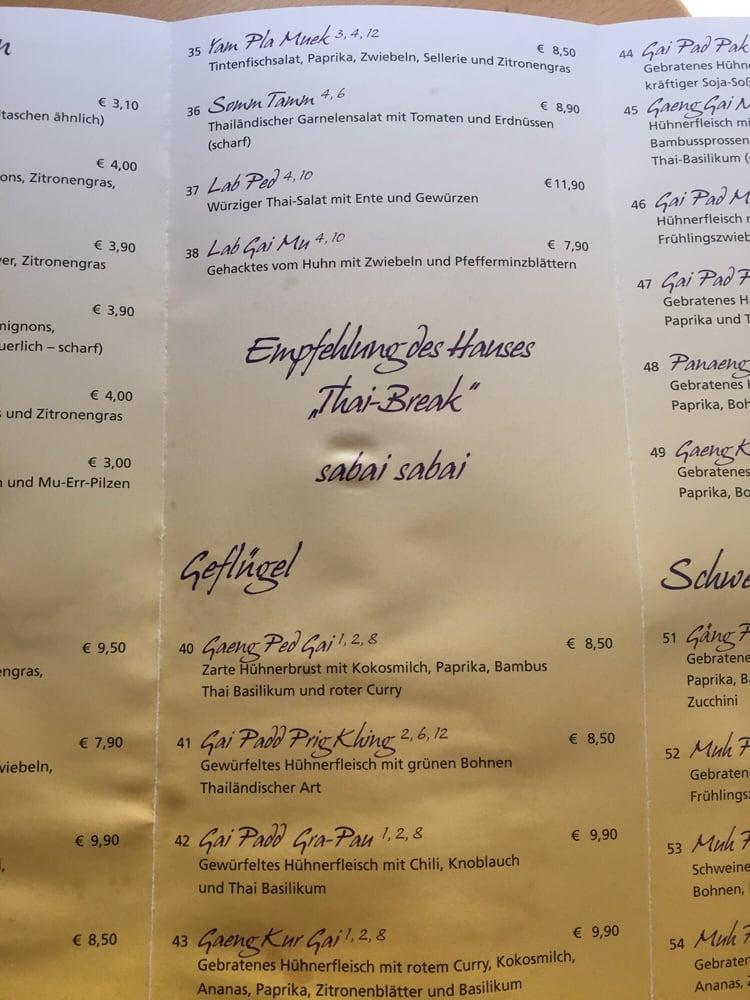 € 3,10
taschen ähnlich)
€ 4,00
ons, Zitronengras,
€ 3,90
er, Zitronengras
€ 3,90
nignons,
uerlich – scharf)
€ 4,00
s und Zitronengras
€ 3,00
n und Mu-Err-Pilzen
€ 9,50
engras,
€ 7,90
wiebeln,
€ 9,90
€ 8,50
35 Yam Pla Muek 3, 4, 12 € 8,50
Tintenfischsalat, Paprika, Zwiebeln, Sellerie und Zitronengras
36 Somm Tamm 4, 6 € 8,90
Thailändischer Garnelensalat mit Tomaten und Erdnüssen
(scharf)
37 Lab Ped 4, 10 €11,90
Würziger Thai-Salat mit Ente und Gewürzen
38 Lab Gai Mu 4, 10 € 7,90
Gehacktes vom Huhn mit Zwiebeln und Pfefferminzblättern
Empfehlung des Hauses
„Thai-Break“
sabai sabai
Geflügel
40 Gaeng Ped Gai 1, 2, 8 € 8,50
Zarte Hühnerbrust mit Kokosmilch, Paprika, Bambus
Thai Basilikum und roter Curry
41 Gai Padd Prig Khing 2, 6, 12 € 8,50
Gewürfeltes Hühnerfleisch mit grünen Bohnen
Thailändischer Art
42 Gai Padd Gra-Pau 1, 2, 8 € 9,90
Gewürfeltes Hühnerfleisch mit Chili, Knoblauch
und Thai Basilikum
43 Gaeng Kur Gai 1, 2, 8 € 9,90
Gebratenes Hühnerfleisch mit rotem Curry, Kokosmilch,
Ananas, Paprika, Zitronenblätter und Basilikum
44 Gai Pad Pak
Gebratenes Hühne
kräftiger Soja-Soß
45 Gaeng Gai M
Hühnerfleisch mi
Bambussprossen
Thai-Basilikum (
46 Gai Pad M
Hühnerfleisch
Frühlingszwieb
47 Gai Pad P
Gebratenes H
Paprika und T
48 Panaeng
Gebratenes
Paprika, Boh
49 Gaeng K
Gebratenes
Paprika, Bo
Schwe
51 Gäng P
Gebratene
Paprika, B
Zucchini
52 Muh P
Gebraten
Frühlings
53 Muh P
Schweine
Bohnen,
54 Muh P
Gebraten
Ananas,